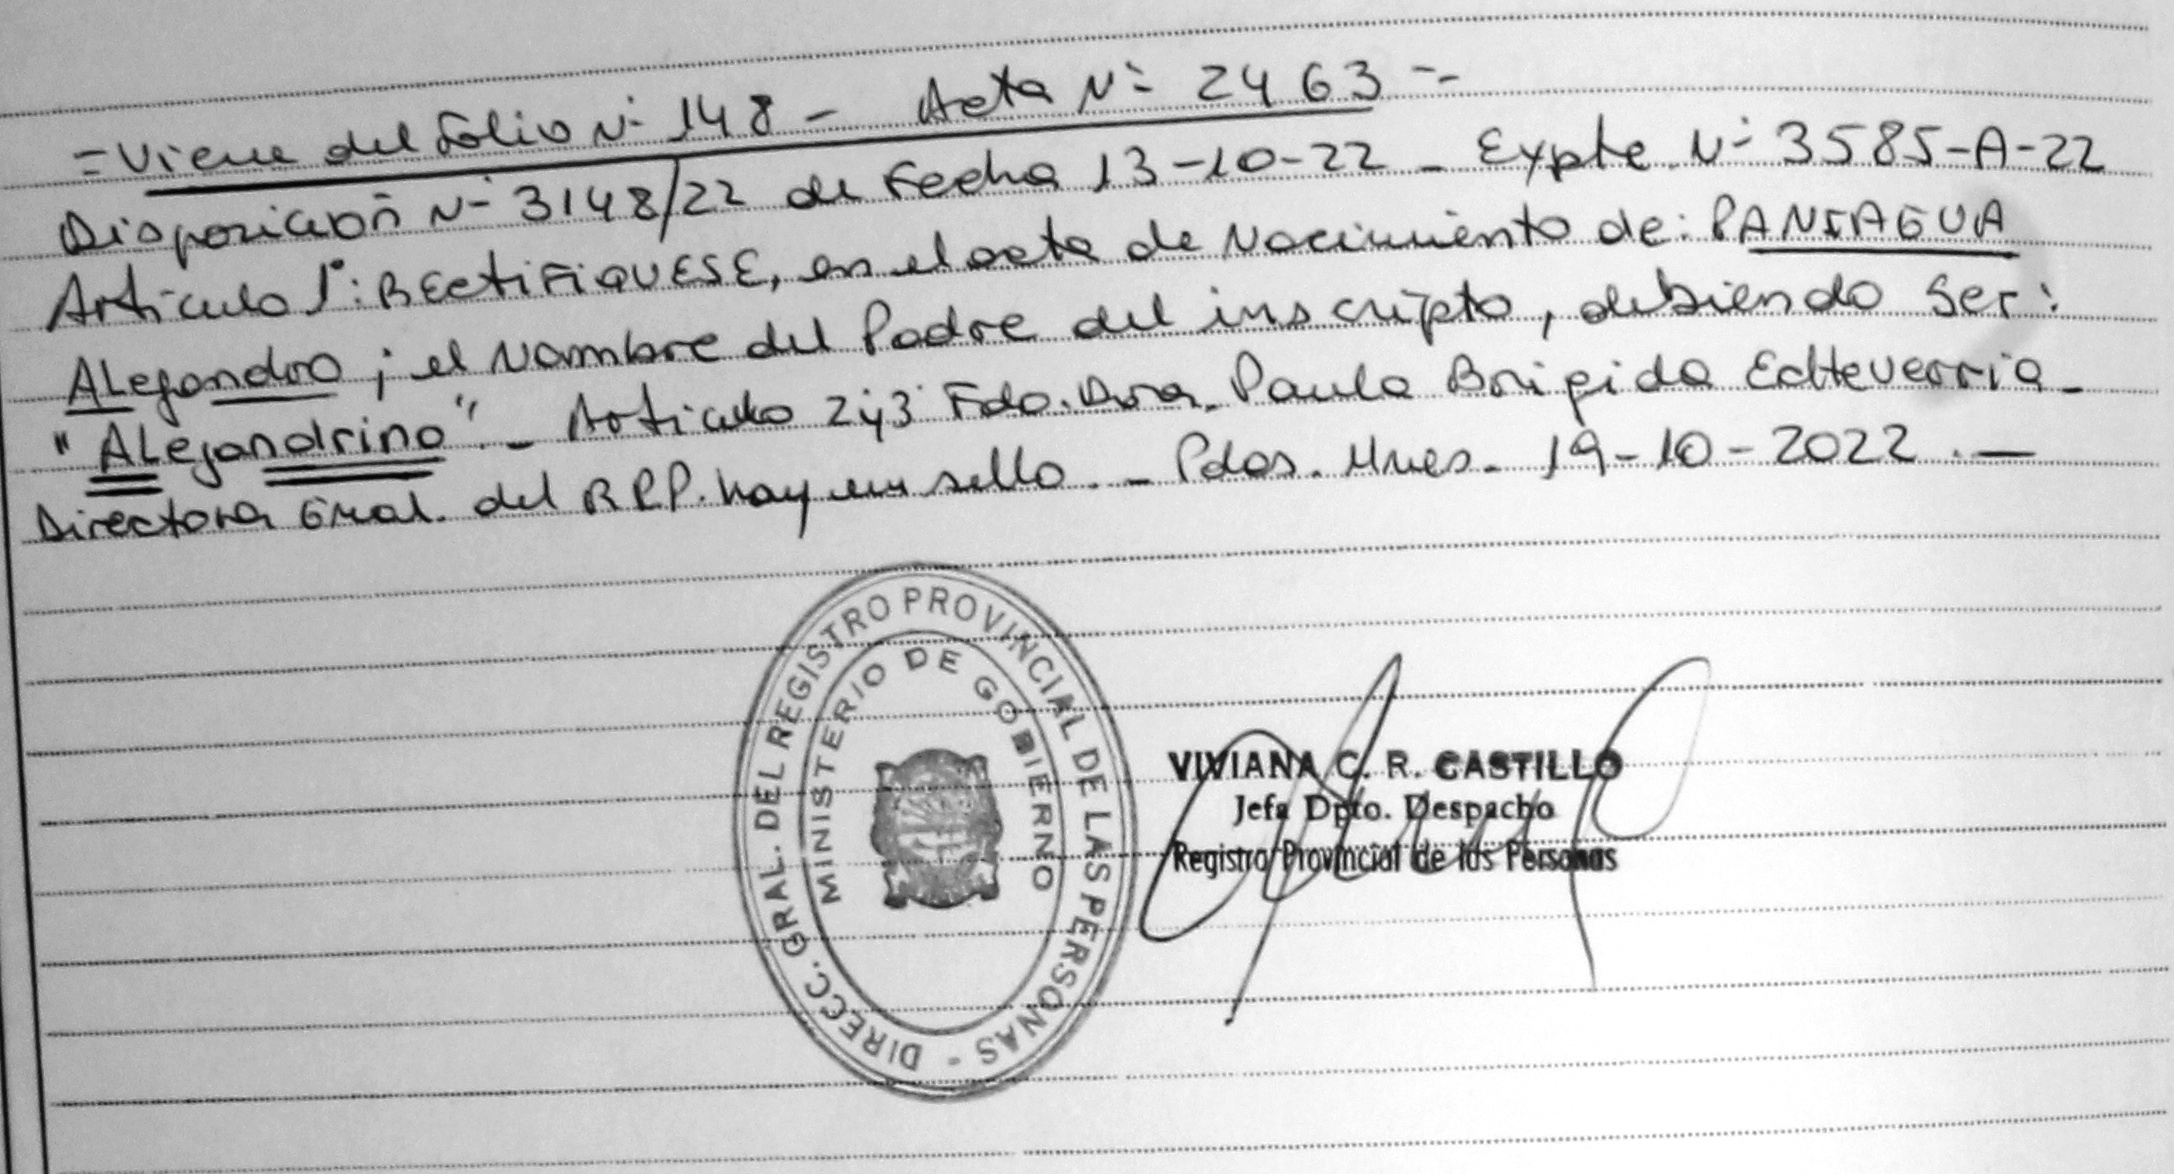 = Viene del Folio N° 148 - Acta N° 2463 --
Disposición N° 3148/22 de Fecha 13-10-22 - Expte. N° 3585-A-22
Artículo 1°: RECtiFiQUESE, en el acta de Nacimiento de: PANIAGUA
ALejandro ; el Nombre del Padre del inscripto, debiendo Ser:
"ALejandrino".- Articulo 2y3 Fdo. Dra. Paula Brigida Echteverria -
Directora Gral. del RPP. hay un sello. - Pdas. Mnes - 19-10-2022. -
DIRECC. GRAL. DEL REGISTRO PROVINCIAL DE LAS PERSONAS -
MINISTERIO DE GOBIERNO
VIVIANA C. R. CASTILLO
Jefa Dpto. Despacho
Registro Provincial de las Personas